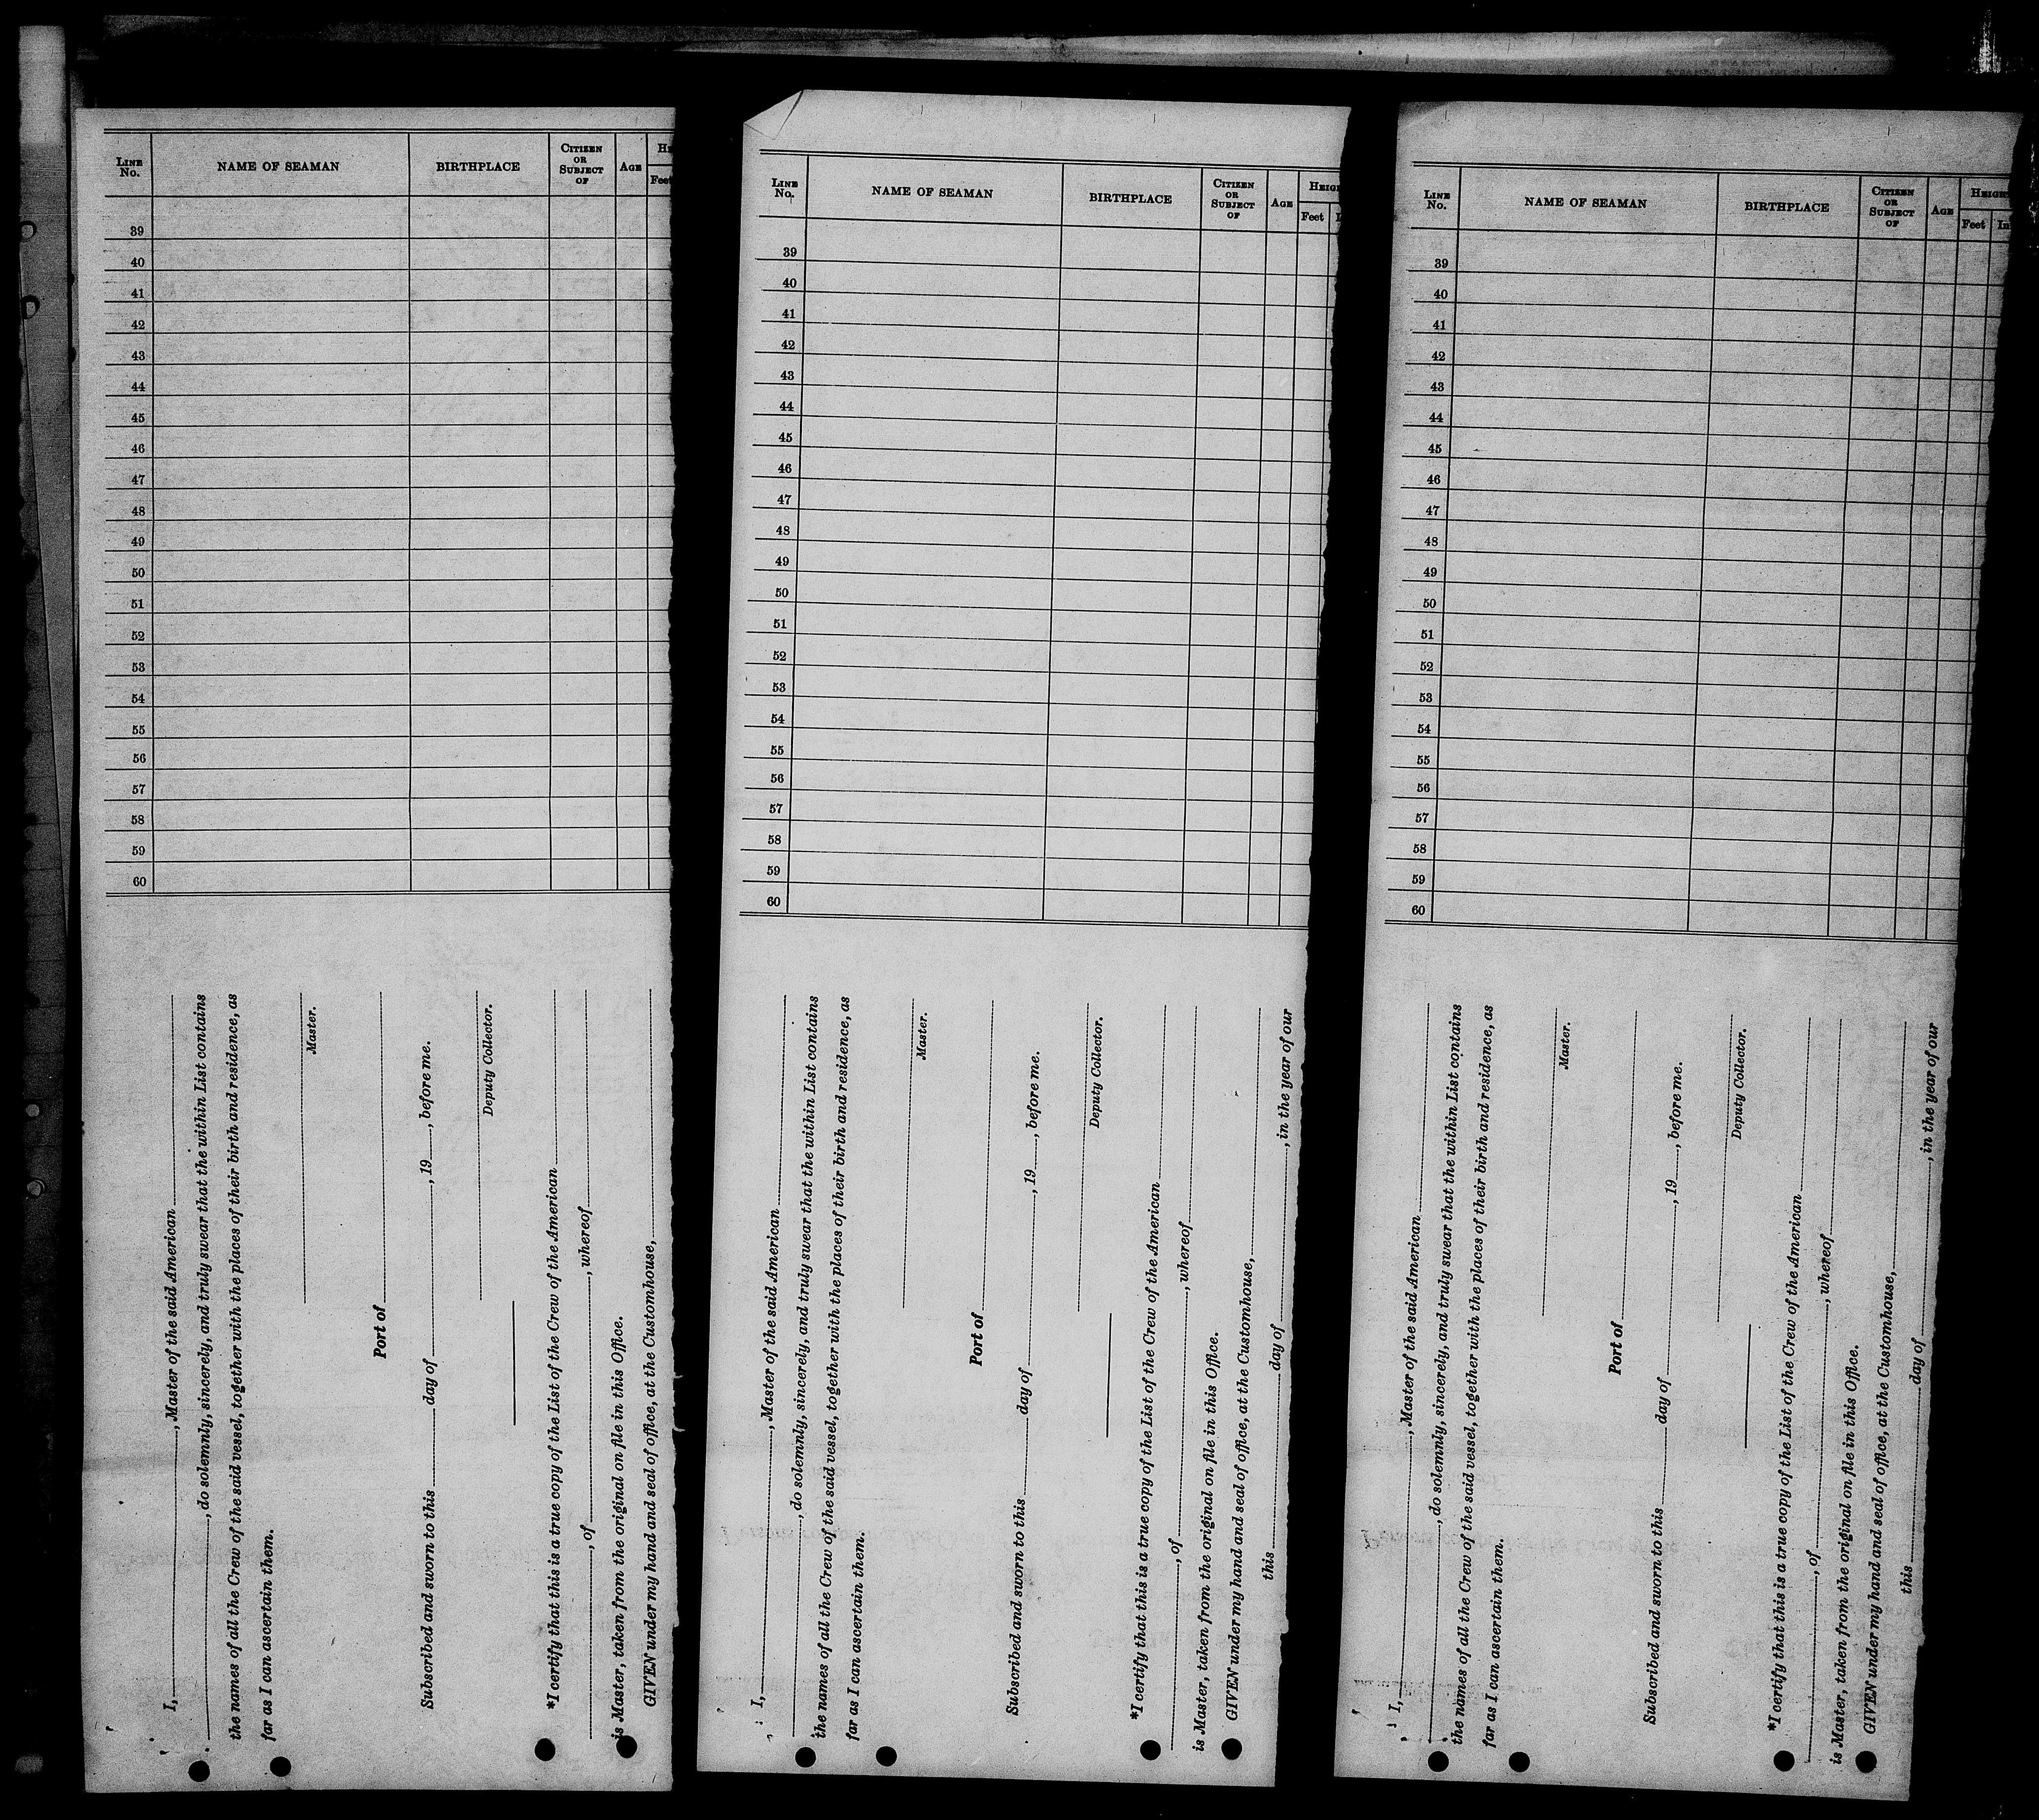 LINE No. NAME OF SEAMAN BIRTHPLACE CITIZEN OR SUBJECT OF AGE
Feet
39
40
41
42
43
44
45
46
47
48
49
50
51
52
53
54
55
56
57
58
59
60
I, , Master of the said American
, do solemnly, sincerely, and truly swear that the within List contains
the names of all the Crew of the said vessel, together with the places of their birth and residence, as
far as I can ascertain them.
Master.
Port of
Subscribed and sworn to this day of , 19 , before me.
Deputy Collector.
*I certify that this is a true copy of the List of the Crew of the American
, of , whereof
is Master, taken from the original on file in this Office.
GIVEN under my hand and seal of office, at the Customhouse,
LINE No. NAME OF SEAMAN BIRTHPLACE CITIZEN OR SUBJECT OF AGE
Feet
39
40
41
42
43
44
45
46
47
48
49
50
51
52
53
54
55
56
57
58
59
60
I, , Master of the said American
, do solemnly, sincerely, and truly swear that the within List contains
the names of all the Crew of the said vessel, together with the places of their birth and residence, as
far as I can ascertain them.
Master.
Port of
Subscribed and sworn to this day of , 19 , before me.
Deputy Collector.
*I certify that this is a true copy of the List of the Crew of the American
, of , whereof
is Master, taken from the original on file in this Office.
GIVEN under my hand and seal of office, at the Customhouse,
this day of , in the year of our
LINE No. NAME OF SEAMAN BIRTHPLACE CITIZEN OR SUBJECT OF AGE
Feet
39
40
41
42
43
44
45
46
47
48
49
50
51
52
53
54
55
56
57
58
59
60
I, , Master of the said American
, do solemnly, sincerely, and truly swear that the within List contains
the names of all the Crew of the said vessel, together with the places of their birth and residence, as
far as I can ascertain them.
Master.
Port of
Subscribed and sworn to this day of , 19 , before me.
Deputy Collector.
*I certify that this is a true copy of the List of the Crew of the American
, of , whereof
is Master, taken from the original on file in this Office.
GIVEN under my hand and seal of office, at the Customhouse,
this day of , in the year of our